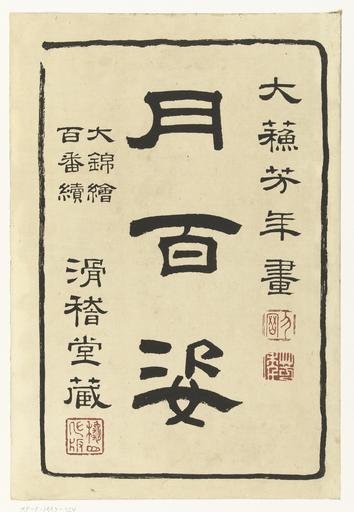 大蘓芳年畫
月百姿
大錦繪
百番續
滑稽堂藏